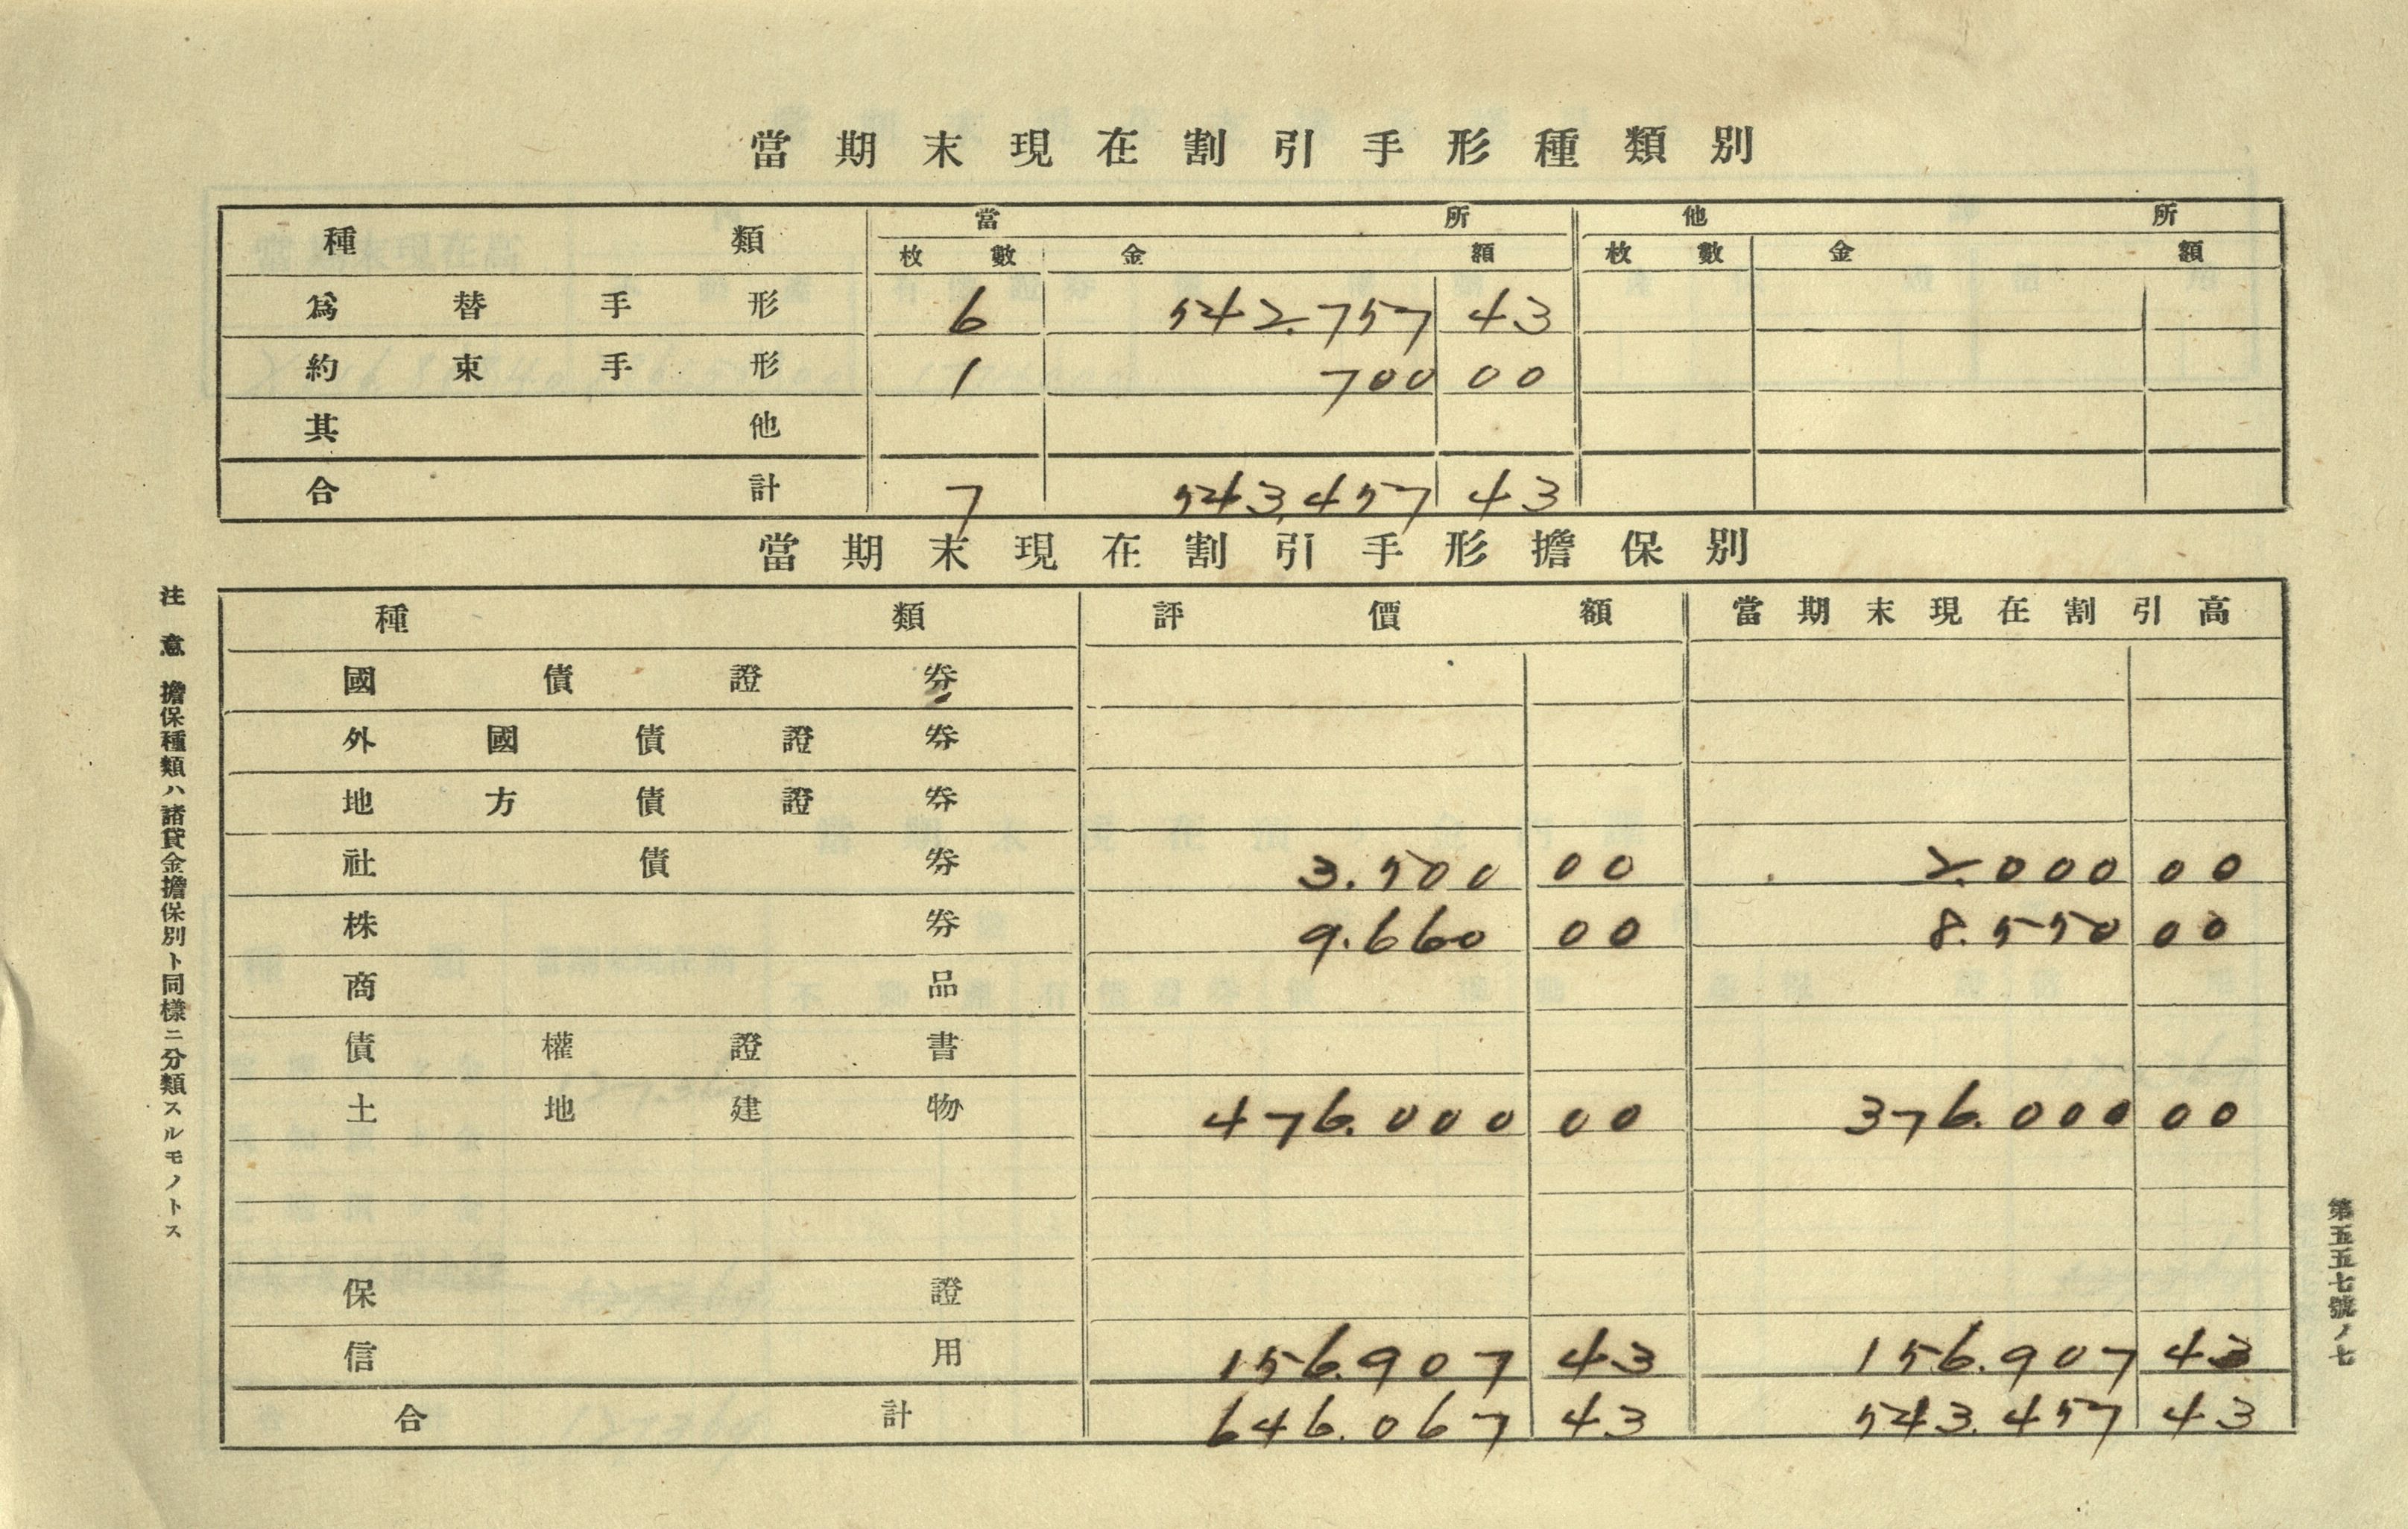 當期末現在割引手形種類別
種類 當所 他所
枚數 金額 枚數 金額
爲替手形 6 542.757 43
約束手形 1 700 00
其他
合計 7 543,457 43
當期末現在割引手形擔保別
種類 評價額 當期末現在割引高
國債證券
外國債證券
地方債證券
社債券 3.500 00 2.000 00
株券 9.660 00 8.550 00
商品
債權證書
土地建物 476.000 00 376.000 00
保證
信用 156.907 43 156.907 43
合計 646.067 43 543.457 43
注意 擔保種類ハ諸貸金擔保別ト同樣ニ分類スルモノトス
第五五七號ノ七